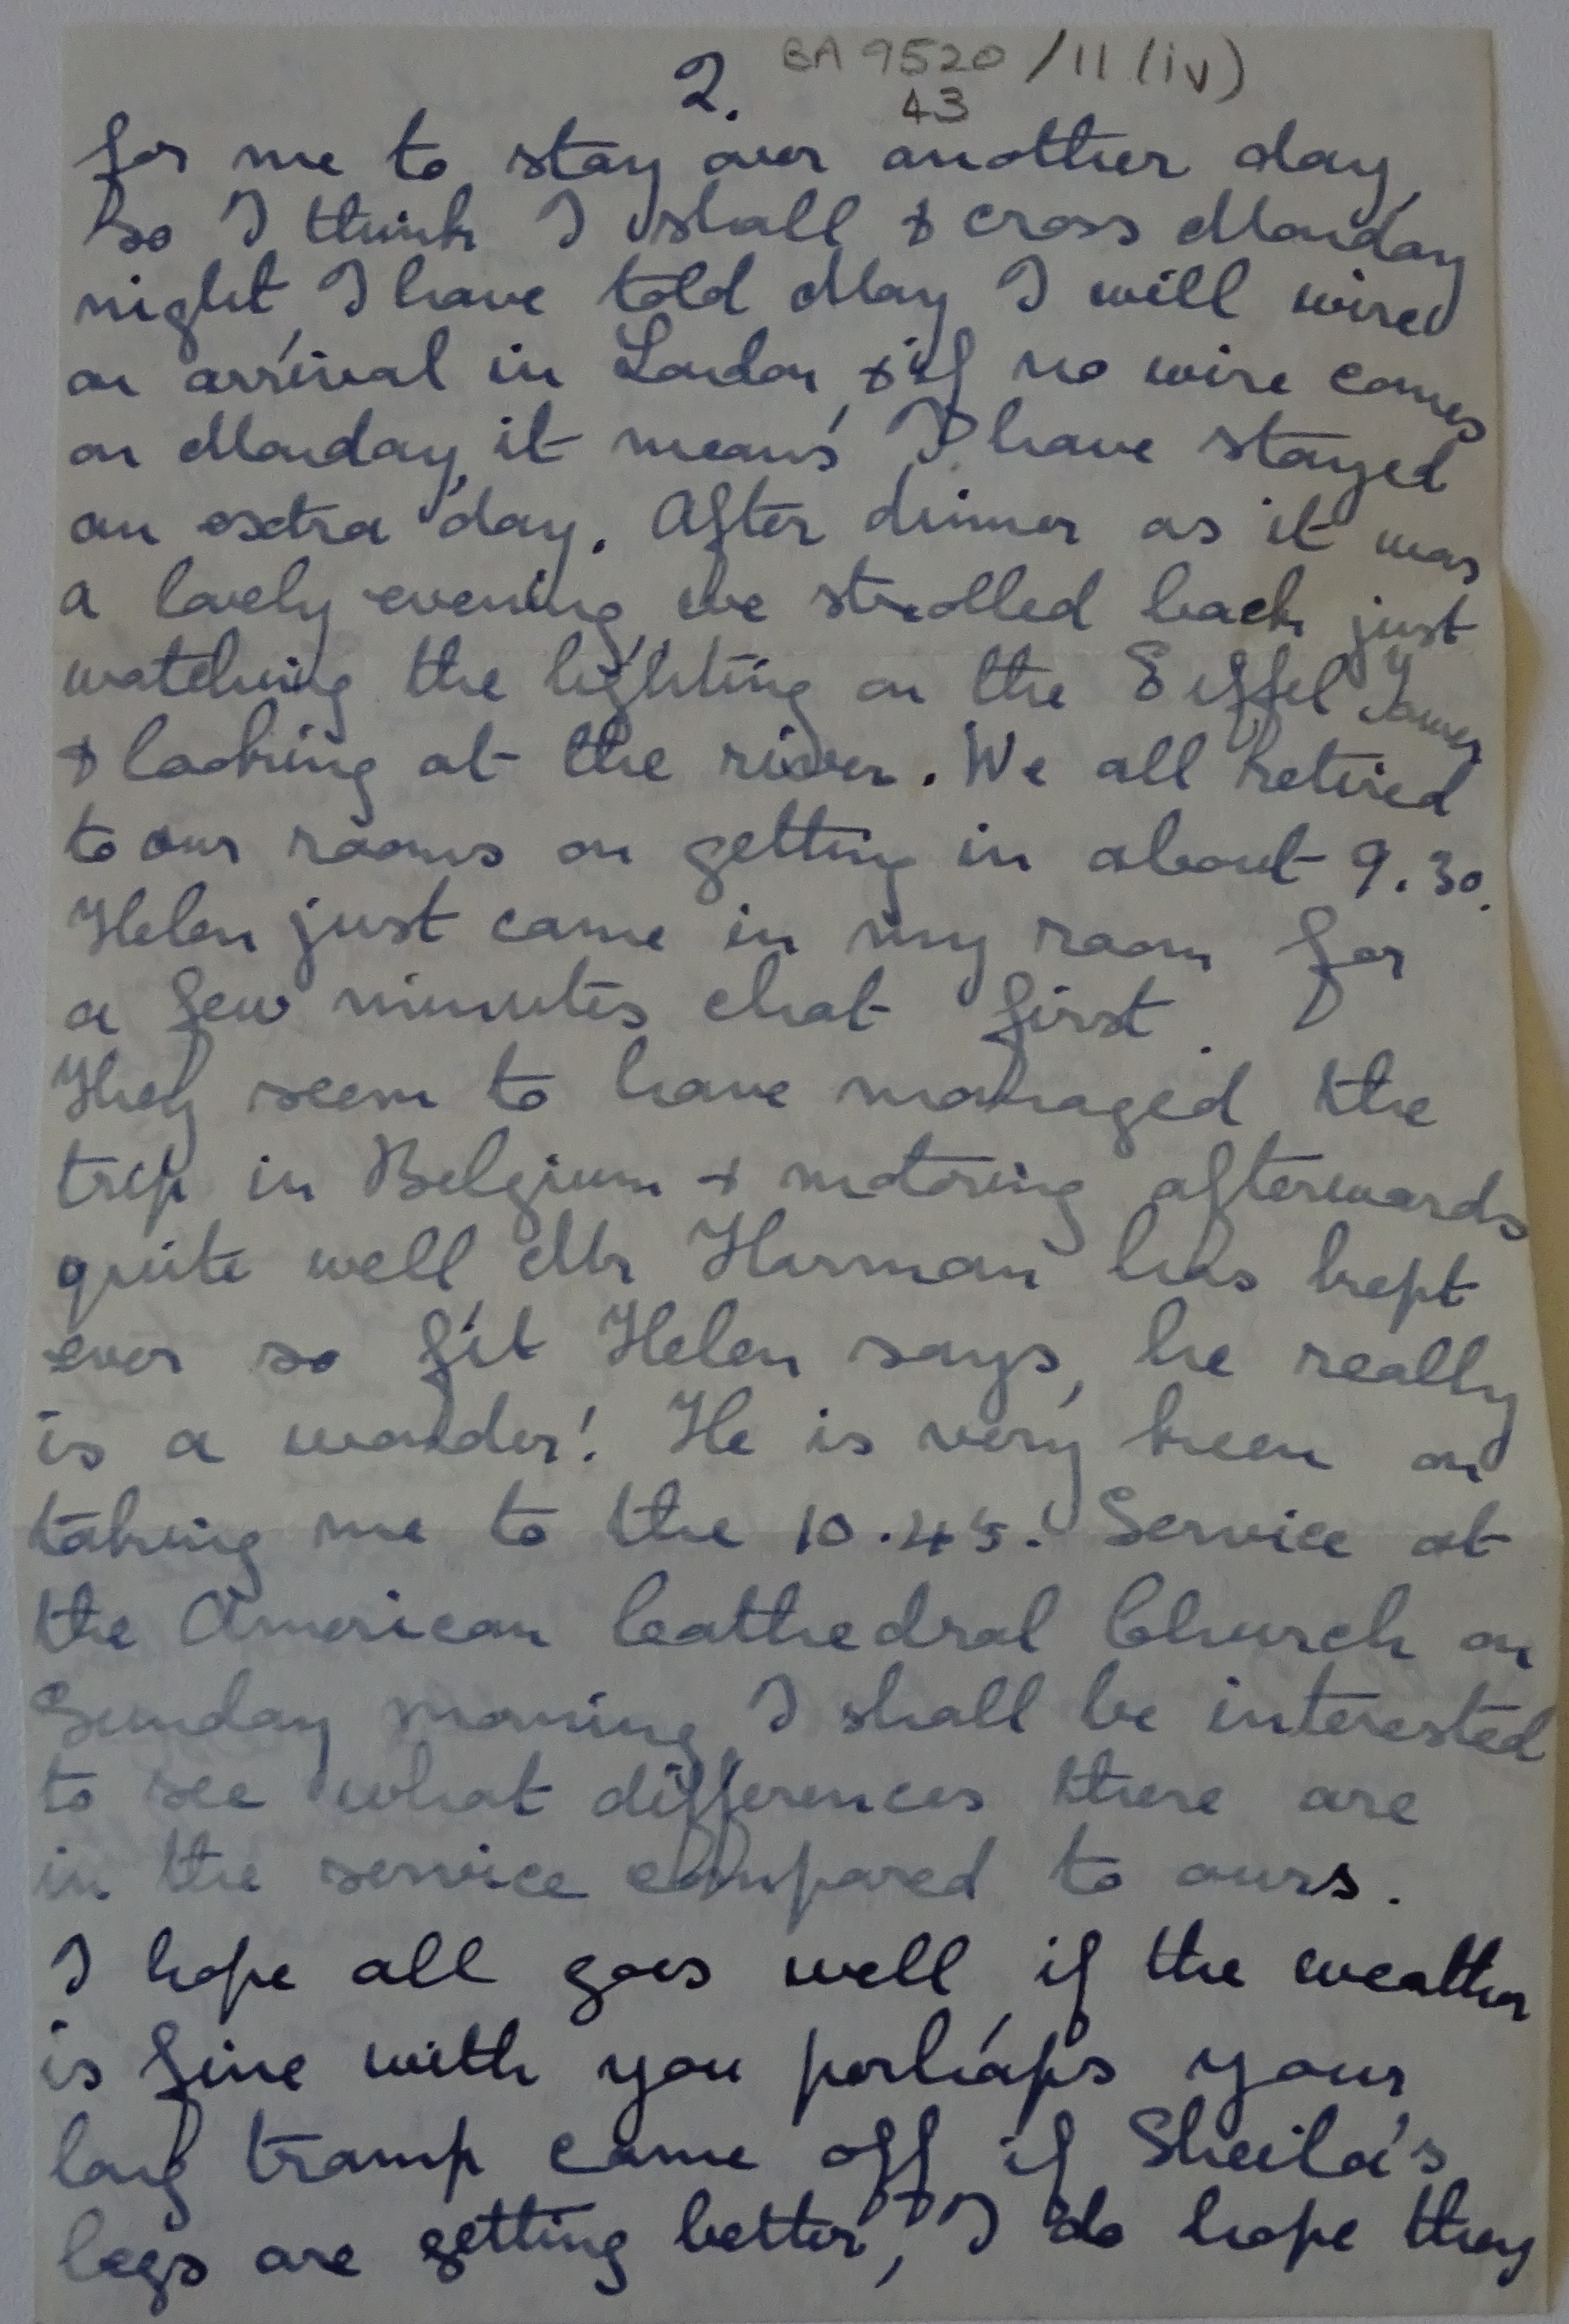 2. BA 9520/11(iv)
43
for me to stay over another day,
so I think I shall & cross Monday
night, I have told May I will wire
on arrival in London, & if no wire comes
on Monday, it means I have stayed
an extra day. After dinner as it was
a lovely evening, we strolled back just
watching the lighting on the Eiffel Tower
& looking at the river. We all retired
to our rooms on getting in about 9.30.
Helen just came in my room for
a few minutes chat first.
They seem to have managed the
trip in Belgium & motoring afterwards
quite well Mr Harman has kept
ever so fit Helen says, he really
is a wonder! He is very keen on
taking me to the 10.45. Service at
the American Cathedral Church on
Sunday morning, I shall be interested
to see what differences there are
in the service compared to ours.
I hope all goes well, if the weather
is fine with you perhaps your
long tramp came off if Sheila's
legs are getting better, & I do hope they